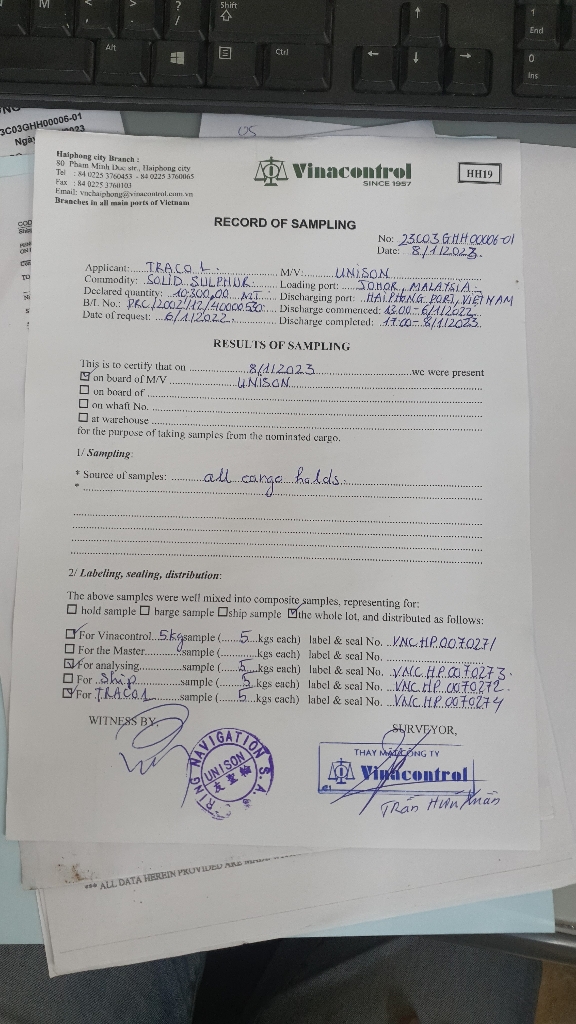 M < > ? / Shift
Alt Ctrl
1 End
0 Ins
3C03GHH00006-01
Haiphong city Branch :
80 Pham Minh Duc str., Haiphong city
Tel : 84 0225 3760453 - 84 0225 3760065
Fax : 84 0225 3760103
Email: vnchaiphong@vinacontrol.com.vn
Branches in all main ports of Vietnam
Vinacontrol
SINCE 1957
HH19
RECORD OF SAMPLING
No: 23C03GHH00006-01
Date: 8/1/2023.
Applicant: TRACO 1. M/V: UNISON
Commodity: SOLID SULPHUR Loading port: JOHOR, MALAYSIA.
Declared quantity: 10.300,00 MT Discharging port: HAIPHONG PORT, VIETNAM
B/L No.: PRG/2002/12/40000530 Discharge commenced: 13.00-6/1/2022
Date of request: 6/1/2022 Discharge completed: 17.00-8/1/2023.
RESULTS OF SAMPLING
This is to certify that on 8/1/2023 we were present
on board of M/V UNISON
on board of
on whaft No.
at warehouse
for the purpose of taking samples from the nominated cargo.
1/ Sampling:
* Source of samples: all cargo holds.
*
2/ Labeling, sealing, distribution:
The above samples were well mixed into composite samples, representing for:
hold sample barge sample ship sample the whole lot, and distributed as follows:
For Vinacontrol 5kg sample (5 kgs each) label & seal No. VNC.HP.0070271
For the Master sample (kgs each) label & seal No.
For analysing sample (5 kgs each) label & seal No. VNC.HP.0070273.
For Ship sample (5 kgs each) label & seal No. VNC.HP.0070272.
For TRACO1 sample (5 kgs each) label & seal No. VNC HP.0070274
WITNESS BY, SURVEYOR,
RING NAVIGATION S.A.
UNISON
THAY MẶT CÔNG TY
Vinacontrol
*** ALL DATA HEREIN PROVIDED ARE